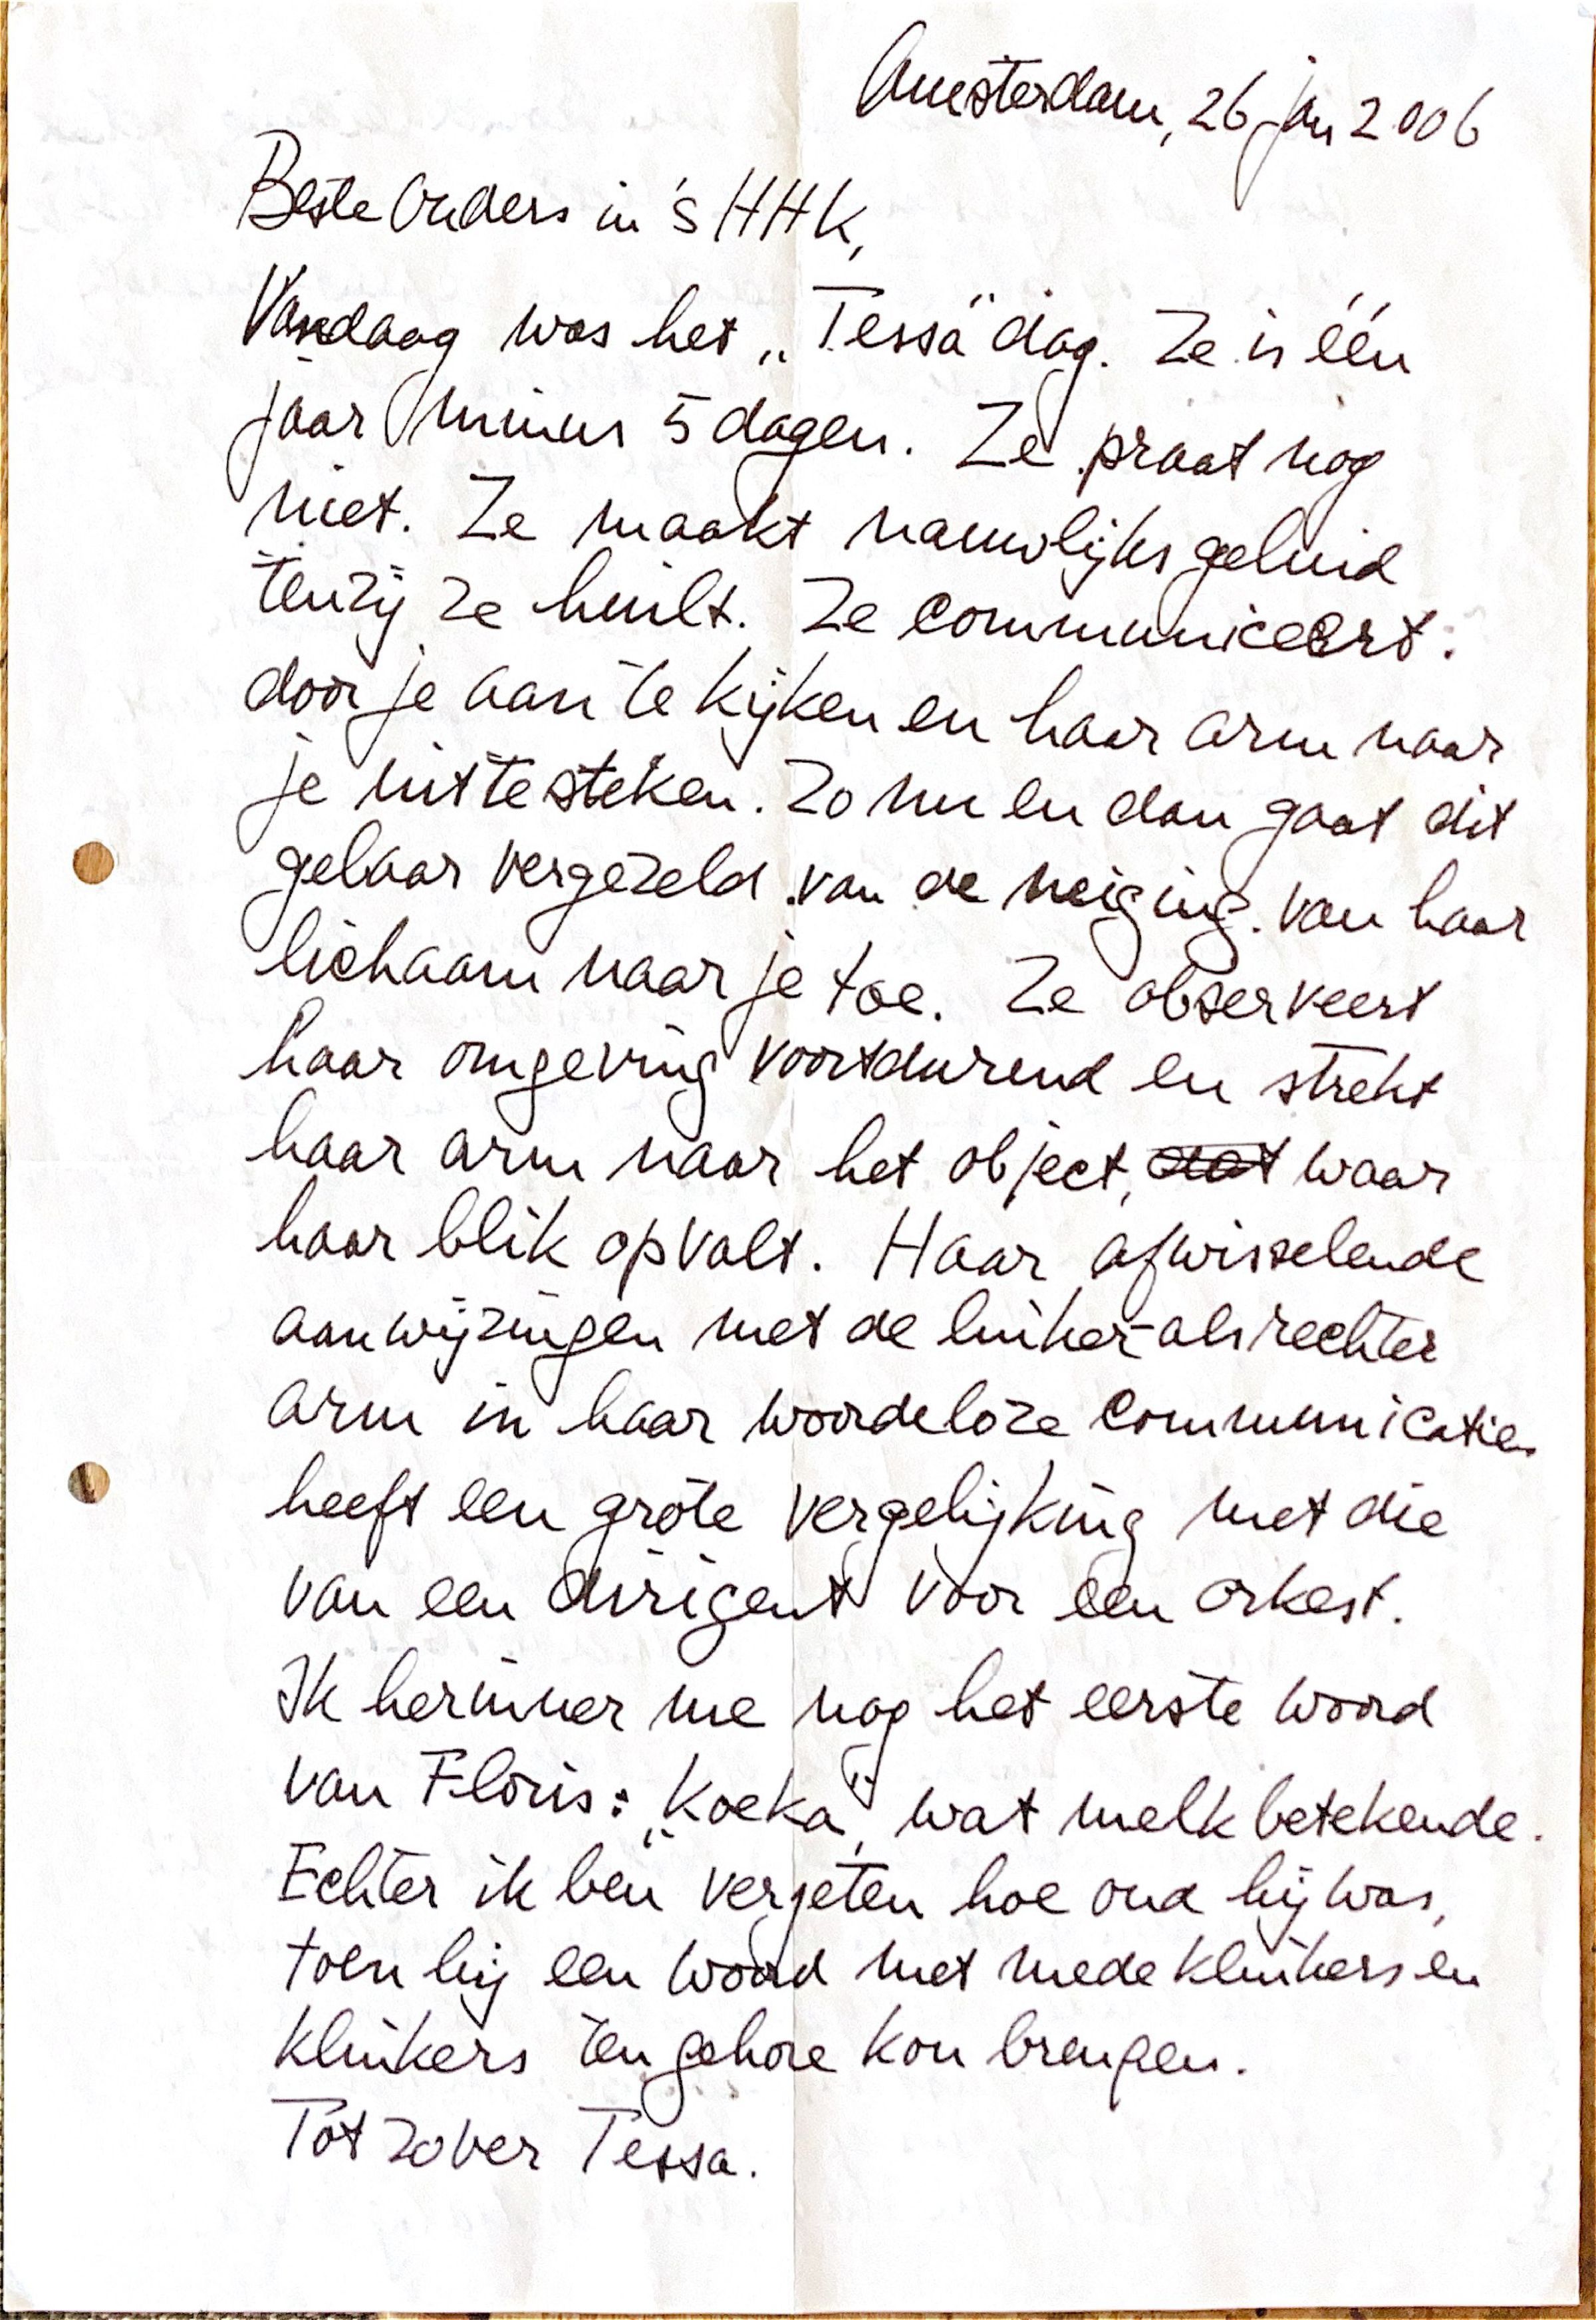 Amsterdam, 26 jan 2006
Beste Ouders in 's HHK,
Vandaag was het „Tessa" dag. Ze is één
jaar minus 5 dagen. Ze praat nog
niet. Ze maakt nauwlijks geluid
tenzij ze huilt. Ze communiceert:
door je aan te kijken en haar arm naar
je uit te steken. Zo nu en dan gaat dit
gebaar vergezeld van de neiging van haar
lichaam naar je toe. Ze observeert
haar omgeving voortdurend en strekt
haar arm naar het object, dat waar
haar blik op valt. Haar afwisselende
aanwijzingen met de linker- als rechter
arm in haar woordeloze communicatie
heeft een grote vergelijking met die
van een dirigent voor een orkest.
Ik herinner me nog het eerste woord
van Floris: „Koeka", wat melk betekende.
Echter ik ben vergeten hoe oud hij was,
toen hij een woord met medeklinkers en
klinkers ten gehore kon brengen.
Tot zover Tessa.